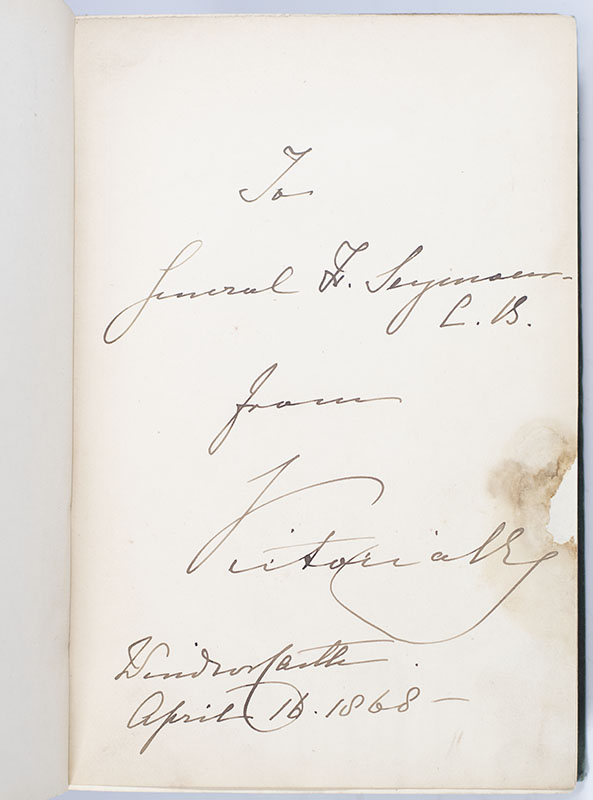 To
General F. Seymour
C. B.
from
Victoria R
Windsor Castle
April 16. 1868 –